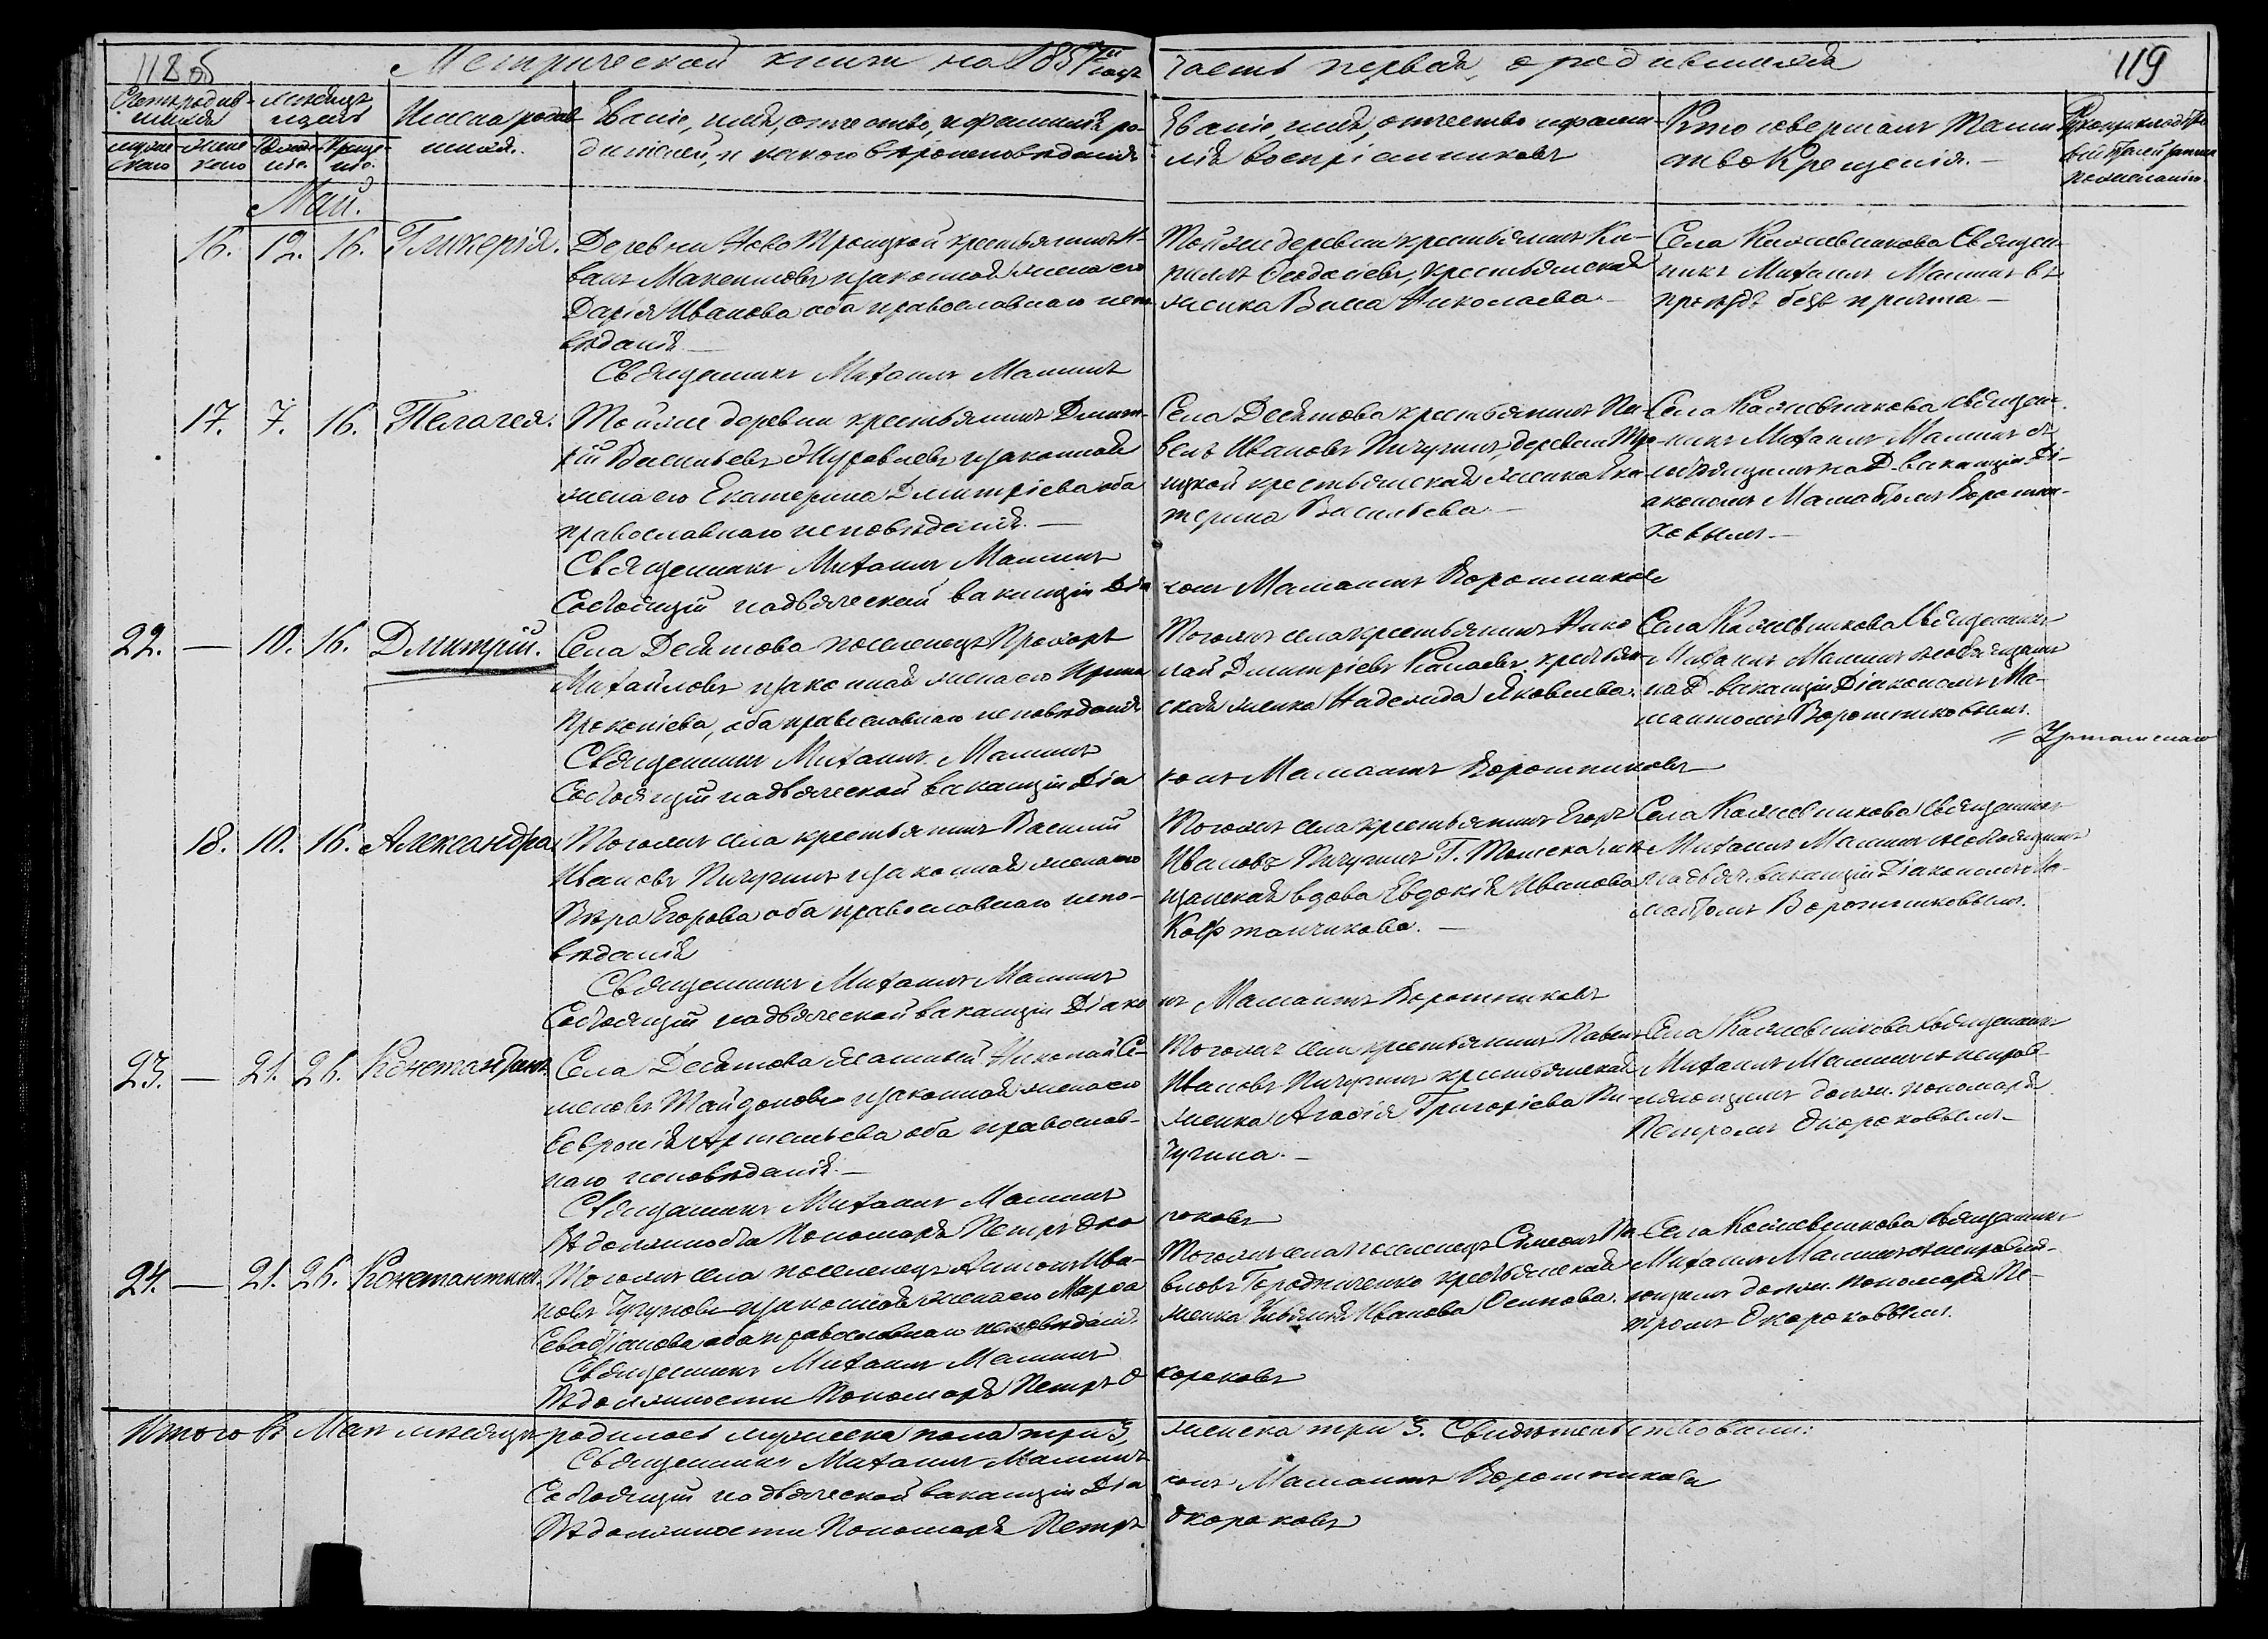 118 об
Метрической книги на 1857й годъ
часть первая, о родившихся
119
Счетъ родив-
шихся
мужес-
каго
Жене-
каго
Месяцъ
и день
Рожде-
нія.
Креще-
нія.
Имена родив-
шихся.
Званіе, имя, отчество, и фамилія ро-
дителей, и какого вѣроисповѣданія
Званіе, имя, отчество и фами-
лія воспріемниковъ
Кто совершалъ Таин-
ство Крещенія.—
Май.
16. 12. 16. Гликерія.
Деревни Ново Троицкой крестьянинъ И-
ванъ Максимовъ и законная жена его
Дарія Иванова оба православнаго испо-
вѣданія.—
Священникъ Михаилъ Малинъ
Той же деревни крестьянинъ Ки-
рилъ Феодосіевъ, крестьянская
женка Васса Николаева.—
Села Священ-
никъ Михаилъ Малинъ въ
проѣздъ безъ причта.—
17. 7. 16. Пелагея.
Той же деревни крестьянинъ Димит-
рій Васильевъ Журавлевъ и законная
жена его Екатерина Димитріева оба
православнаго исповѣданія.—
Священникъ Михаилъ Малинъ
Состоящій на дьяческой вакансіи Діа
конъ Мамантъ Ворошниковъ
Села Десятова крестьянинъ Па-
велъ Ивановъ Пичугинъ, деревни Тро-
ицкой крестьянская женка Ека-
терина Васильева.—
Села Священ-
никъ Михаилъ Малинъ съ
состоящимъ на Д. вакансіи Ді-
акономъ Мамантомъ Ворошни-
ковымъ.—
22. — 10. 16. Дмитрій.
Села Десятова поселенецъ Прохоръ
Михайловъ и законная жена его Ирина
Прокопіева, оба православнаго исповѣданія
Священникъ Михаилъ Малинъ
Состоящій на дьяческой вакансіи Діа
конъ Мамантъ Ворошниковъ
Того же села крестьянинъ Нико
лай Димитріевъ Канаевъ, крестьян-
ская женка Надежда Яковлева.
Села Священникъ
Михаилъ Малинъ съ состоящимъ
на Д. вакансіи Діакономъ Ма-
мантомъ Ворошниковымъ.
18. 10. 16. Александра.
Того же села крестьянинъ Василій
Ивановъ Пичугинъ и законная жена его
Вѣра Егорова оба православнаго испо-
вѣданія
Священникъ Михаилъ Малинъ
Состоящій на дьяческой вакансіи Діако
нъ Мамантъ Ворошниковъ
Того же села крестьянинъ Егоръ
Ивановъ Пичугинъ Г. Томска мѣ-
щанская вдова Евдокія Иванова
Кафтанчикова.—
Села Священникъ
Михаилъ Малинъ съ состоящимъ
на дьяч. вакансіи Діакономъ Ма-
мантомъ Ворошниковымъ.
23. — 21. 26. Константинъ.
Села Десятова Николай Се-
меновъ и законная жена его
Арсеньева оба православ-
наго исповѣданія.—
Священникъ Михаилъ Малинъ
Въ должности Пономаря Петръ Око
роковъ
Того же села крестьянинъ Павелъ
Ивановъ Пичугинъ крестьянская
женка Агафія Григоріева Пи-
чугина.—
Села Священникъ
Михаилъ Малинъ съ исправ-
ляющимъ должн. пономаря
Петромъ Окороковымъ—
24. — 21. 26. Константинъ.
Того же села поселенецъ Антонъ Ива-
новъ Чугуновъ и законная жена его Марфа
Севастіанова оба православнаго исповѣданія.
Священникъ Михаилъ Малинъ
Въ должности Пономаря Петръ О
короковъ
Того же села поселенецъ Симеонъ Па-
вловъ Городниченко крестьянская
женка Иванова Осипова.
Села Священникъ
Михаилъ Малинъ съ исправля-
ющимъ должн. пономаря Пе-
тромъ Окороковымъ.
Итого въ Маѣ мѣсяцѣ родилось мужеска пола три 3,
женска три 3. Свидѣтельствовали:
Священникъ Михаилъ Малинъ
Состоящій на дьяческой вакансіи Діа
конъ Мамантъ Ворошниковъ
Въ должности Пономаря Петръ
Окороковъ